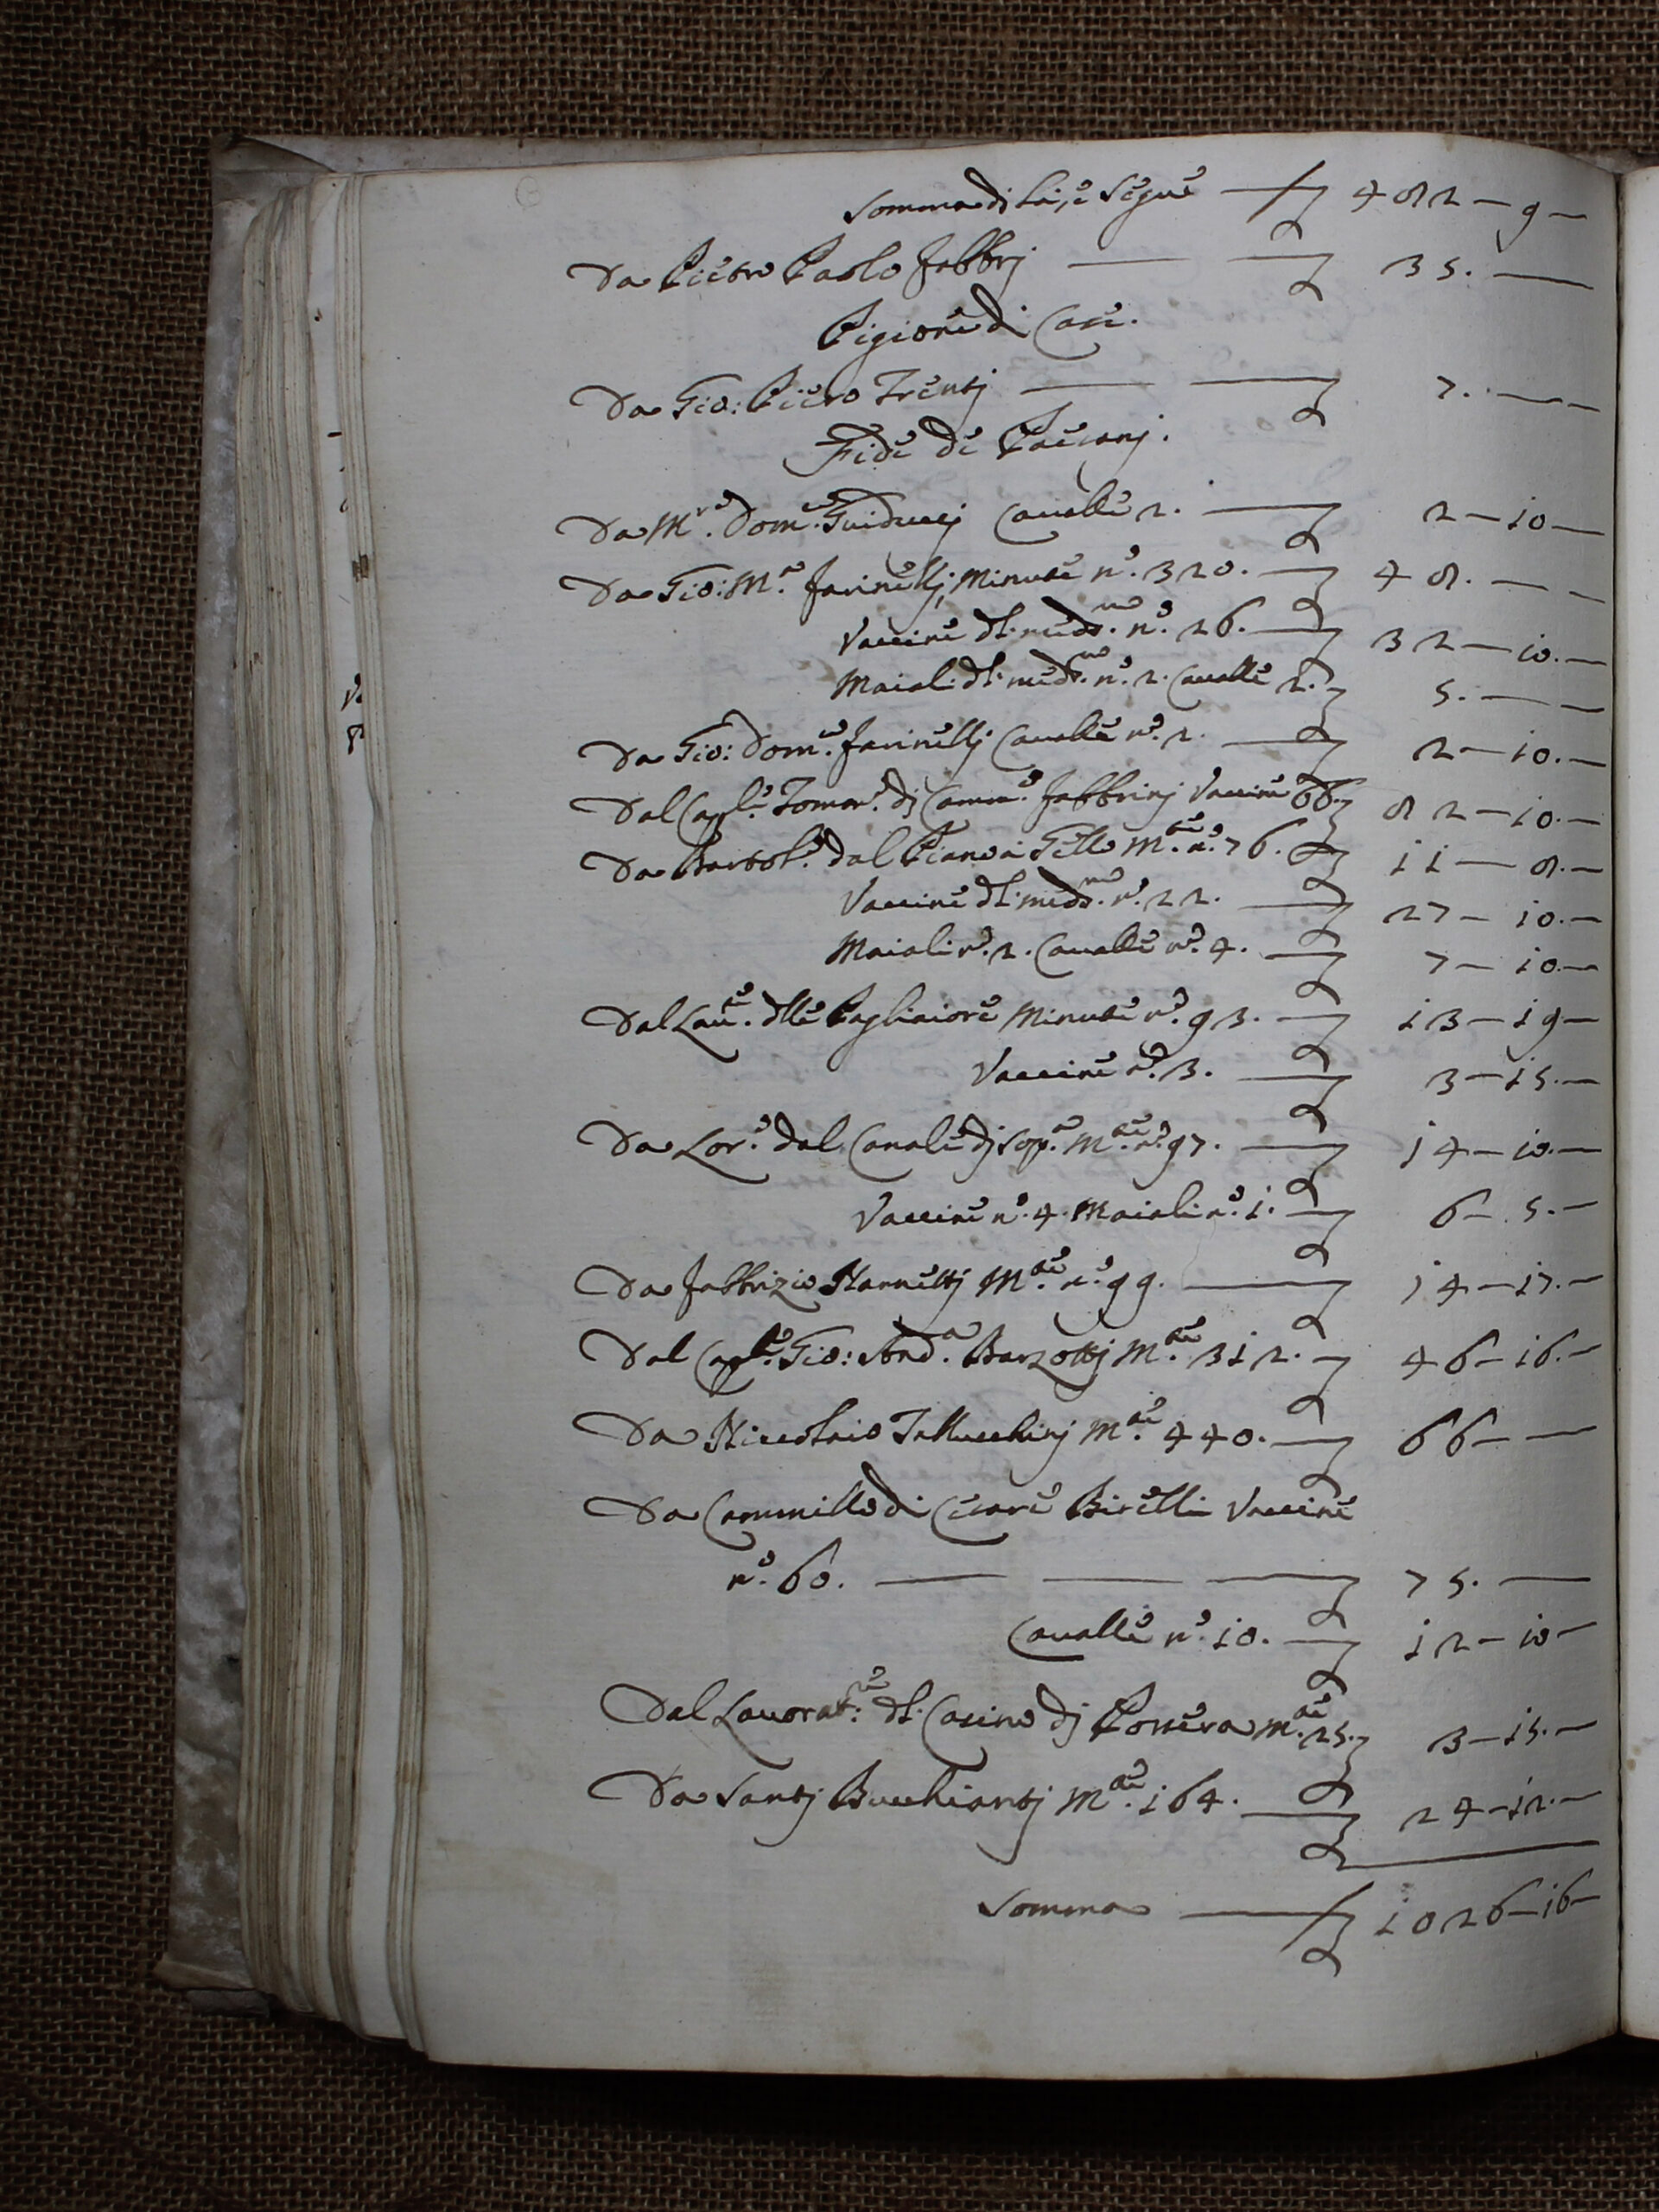 Somma di là, e Segue — £ 482 — 9 —
Da Pietro Paolo Fabbrj — — £ 35. —
Pigione di Case.
Da Gio: Piero Trentj — — £ 7. — —
Fide de Paesanj.
Da M.ro Dom.co Guiduccj Cavalle 2. — £ 2 — 10 —
Da Gio: M.a Farinellj, Minute n.o 320. — £ 48. — —
Vaccine dl. med.mo n.o 26. — £ 32 — 10. —
Maiali dl. med.mo n.o 2. Cavalle 2. £ 5. — —
Da Gio: Dom.co Farinellj Cavalle n.o 2. — £ 2 — 10. —
Dal Cap.o Tomas.o dj Camm.o Fabbrinj Vaccine 66. £ 82 — 10. —
Da Bartol.o dal Piano à Tello M.te n.o 76. £ 11 — 8. —
Vaccine dl. med.mo n.o 22. — £ 27 — 10. —
Maiali n.o 2. Cavalle n.o 4. — £ 7 — 10. —
Dal Lau.re dlle Pagliaiole Minute n.o 93. — £ 13 — 19 —
Vaccine n.o 3. — £ 3 — 15. —
Da Lor.o dal Canale dj Sop.a M.te n.o 97. — £ 14 — 10. —
Vaccine n.o 4. Maiali n.o 1. — £ 6 — 5. —
Da Fabbrizio Nannettj M.te n.o 99. — £ 14 — 17. —
Dal Cap.o Gio: And.a Barzottj M.te 312. — £ 46 — 16. —
Da Niccolaio Talluchinj M.te 440. — £ 66 — —
Da Cammillo di Cesare Birelli Vaccine
n.o 60. — — — £ 75. —
Cavalle n.o 10. — £ 12 — 10 —
Dal Lavorat.re dl. Casino dj Possera M.te 25. £ 3 — 15. —
Da Santj Bucchiantj M.te 164. — £ 24 — 12. —
Somma — £ 1026 — 16 —